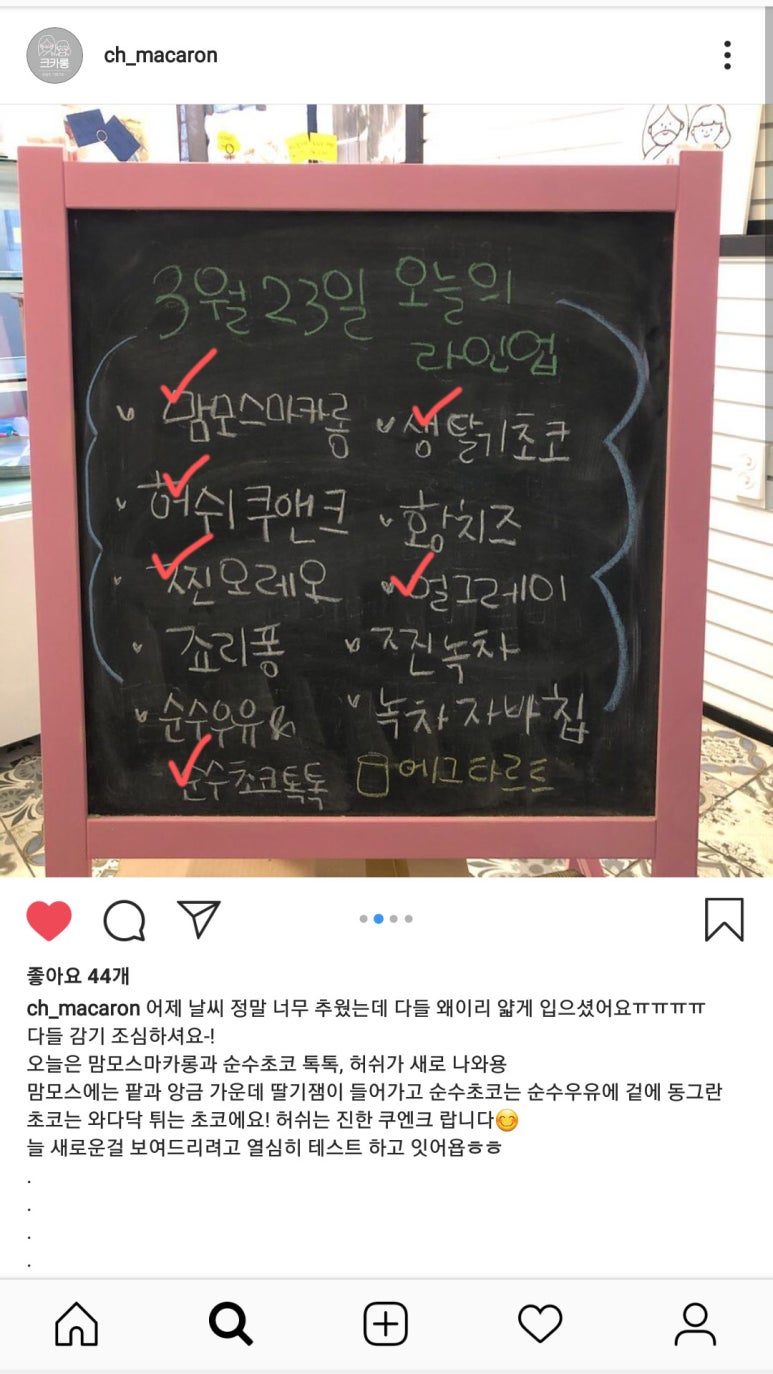 크카롱
ch_macaron
3월 23일 오늘의
라인업
맘모스마카롱
생딸기초코
허쉬쿠앤크
황치즈
찐오레오
얼그레이
죠리퐁
찐녹차
순수우유&
녹차자바칩
순수초코톡톡
에그타르트
좋아요 44개
ch_macaron 어제 날씨 정말 너무 추웠는데 다들 왜이리 얇게 입으셨어요ㅠㅠㅠㅠ
다들 감기 조심하셔요-!
오늘은 맘모스마카롱과 순수초코 톡톡, 허쉬가 새로 나와용
맘모스에는 팥과 앙금 가운데 딸기잼이 들어가고 순수초코는 순수우유에 겉에 동그란
초코는 와다닥 튀는 초코에요! 허쉬는 진한 쿠엔크 랍니다😊
늘 새로운걸 보여드리려고 열심히 테스트 하고 잇어욥ㅎㅎ
.
.
.
.